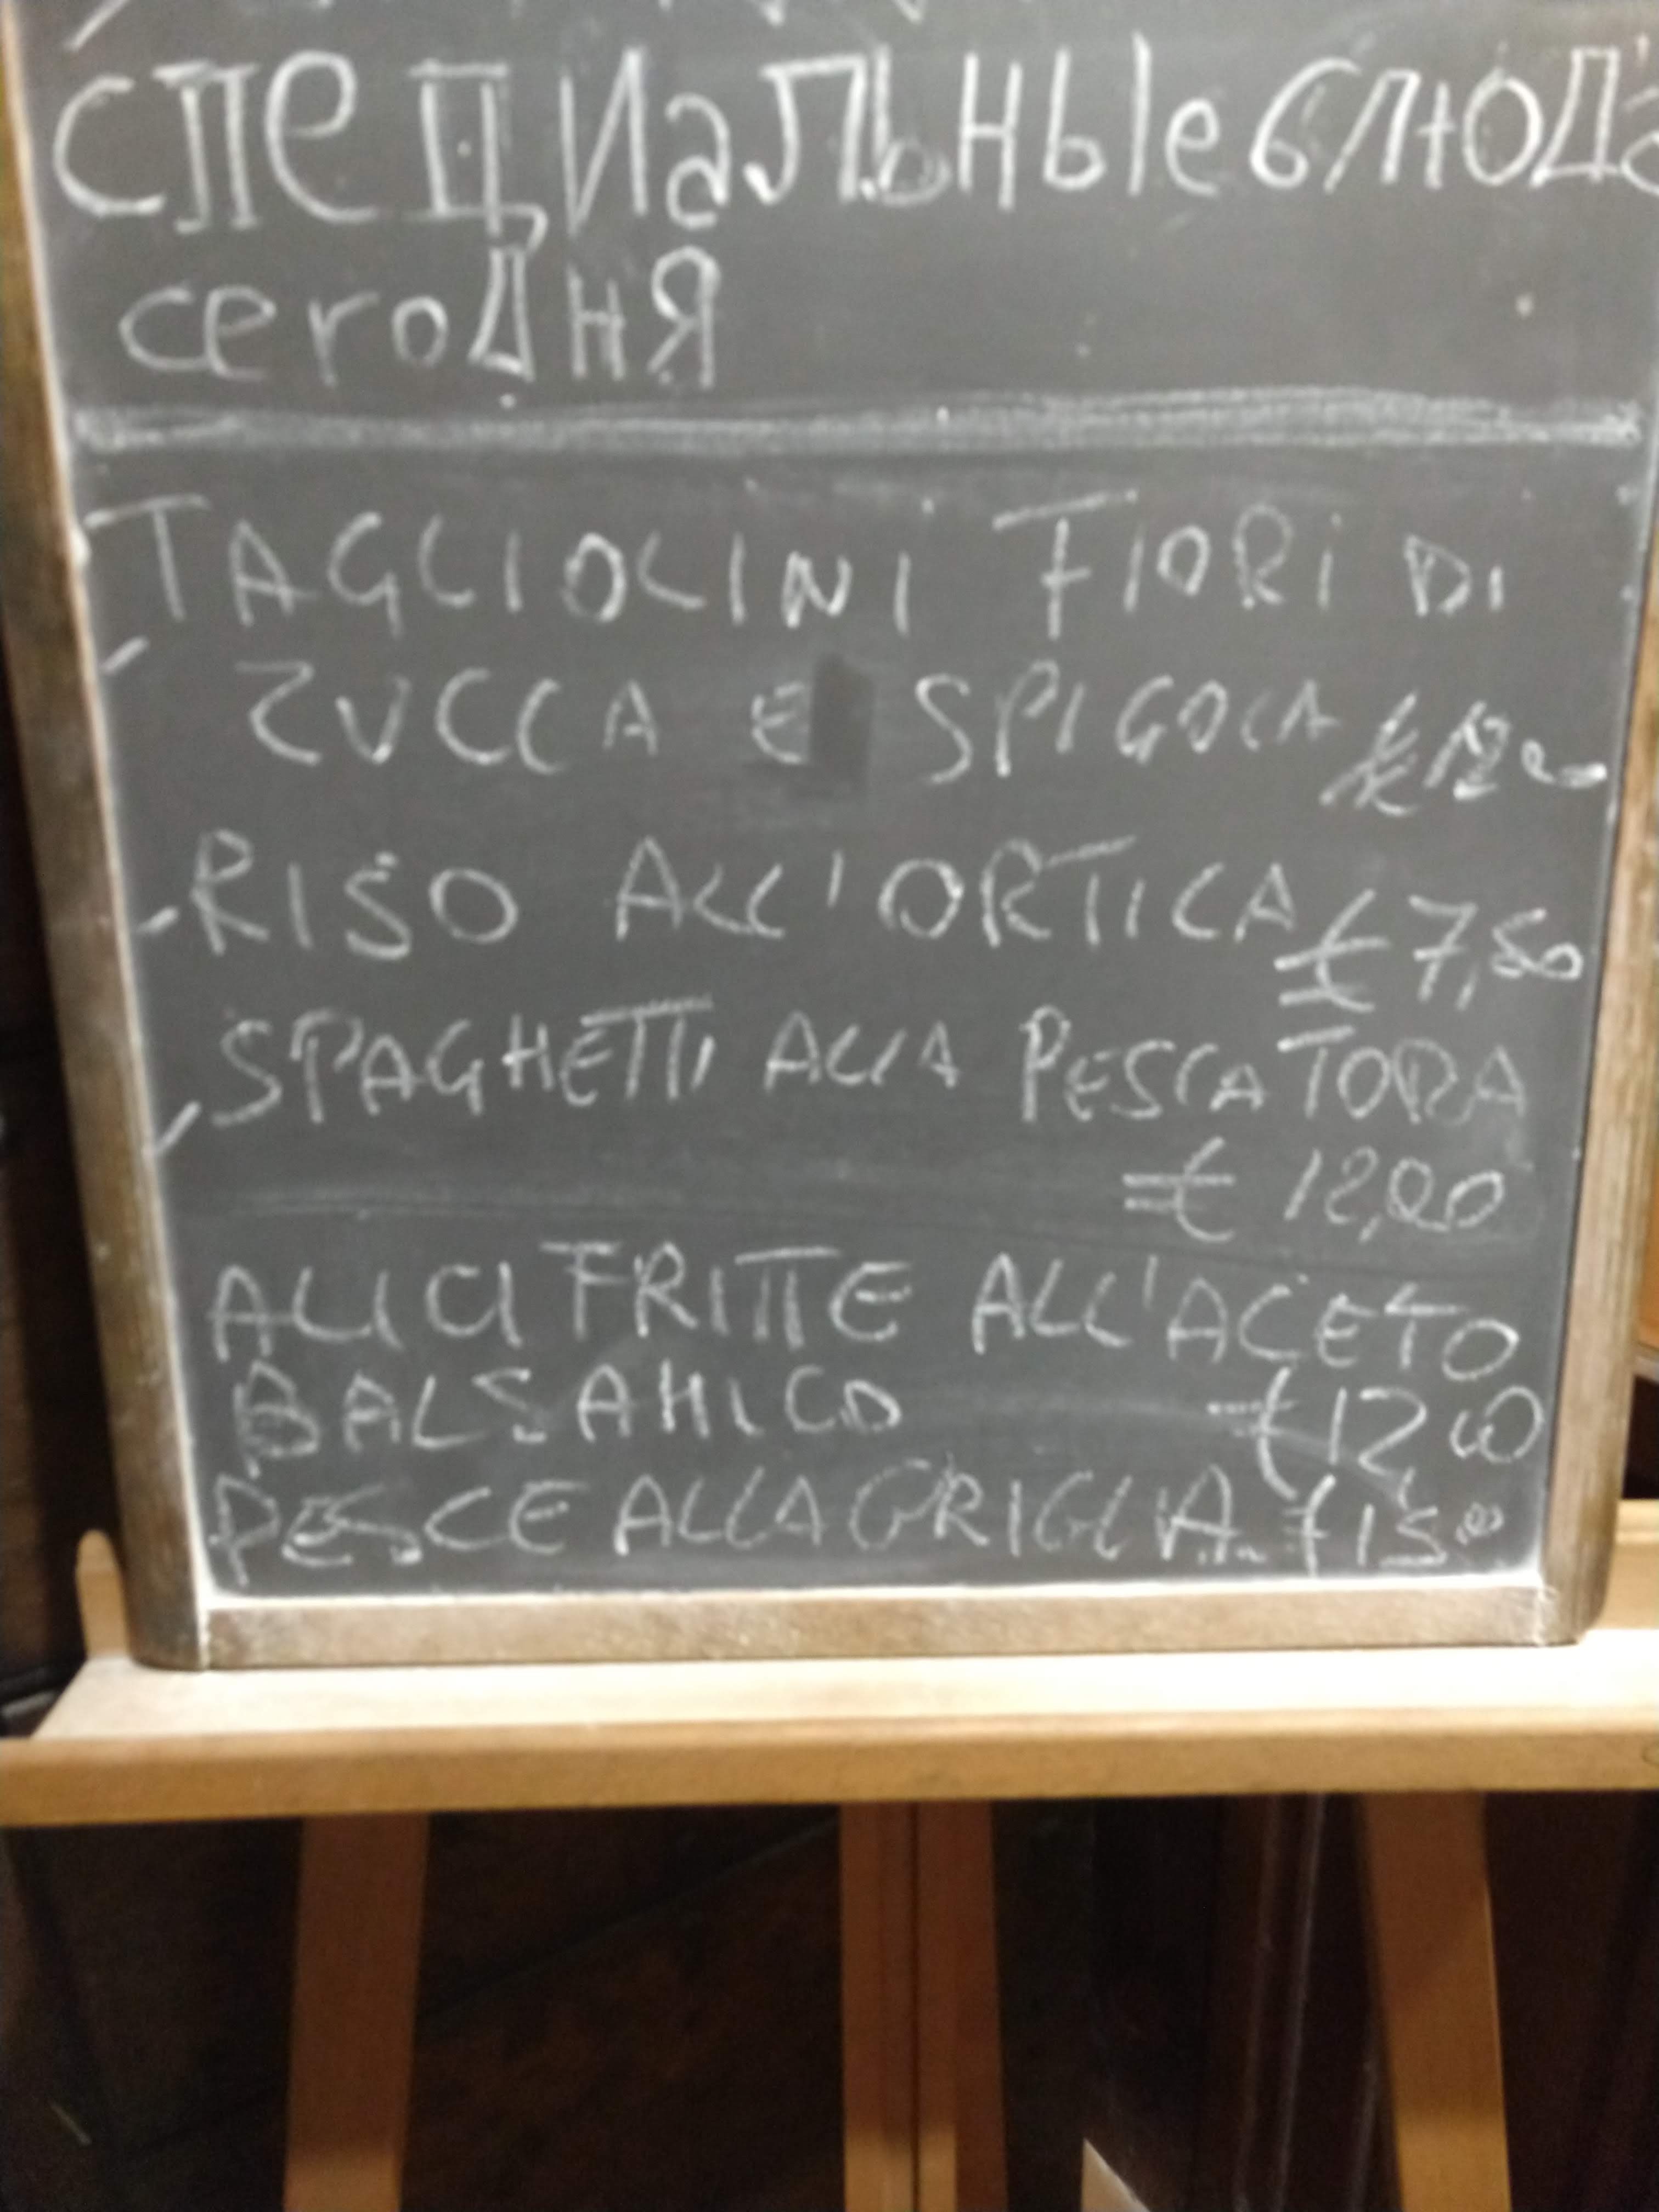 специальные блюда
сегодня
TAGLIOLINI FIORI DI
ZUCCA E SPIGOLA €12,00
- RISO ALL'ORTICA € 7,50
- SPAGHETTI ALLA PESCATORA
€ 12,00
ALICI FRITTE ALL'ACETO
BALSAMICO €12,00
PESCE ALLA GRIGLIA... €15,00